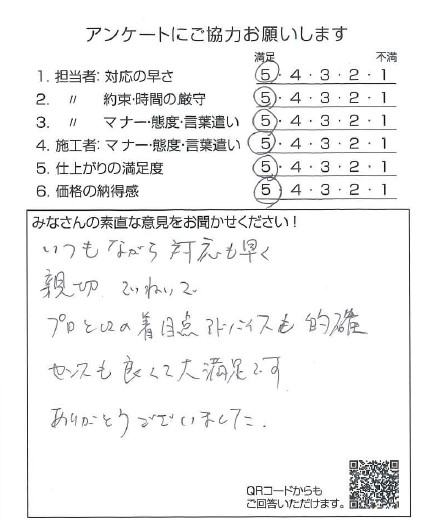 アンケートにご協力お願いします
満足 不満
1. 担当者: 対応の早さ 5・4・3・2・1
2. 〃 約束・時間の厳守 5・4・3・2・1
3. 〃 マナー・態度・言葉遣い 5・4・3・2・1
4. 施工者: マナー・態度・言葉遣い 5・4・3・2・1
5. 仕上がりの満足度 5・4・3・2・1
6. 価格の納得感 5・4・3・2・1
みなさんの素直な意見をお聞かせください!
いつもながら 対応も早く
親切 ていねいで
プロとしての着目点 アドバイスも 的確
センスも良くて大満足です
ありがとうございました。
QRコードからも
ご回答いただけます。